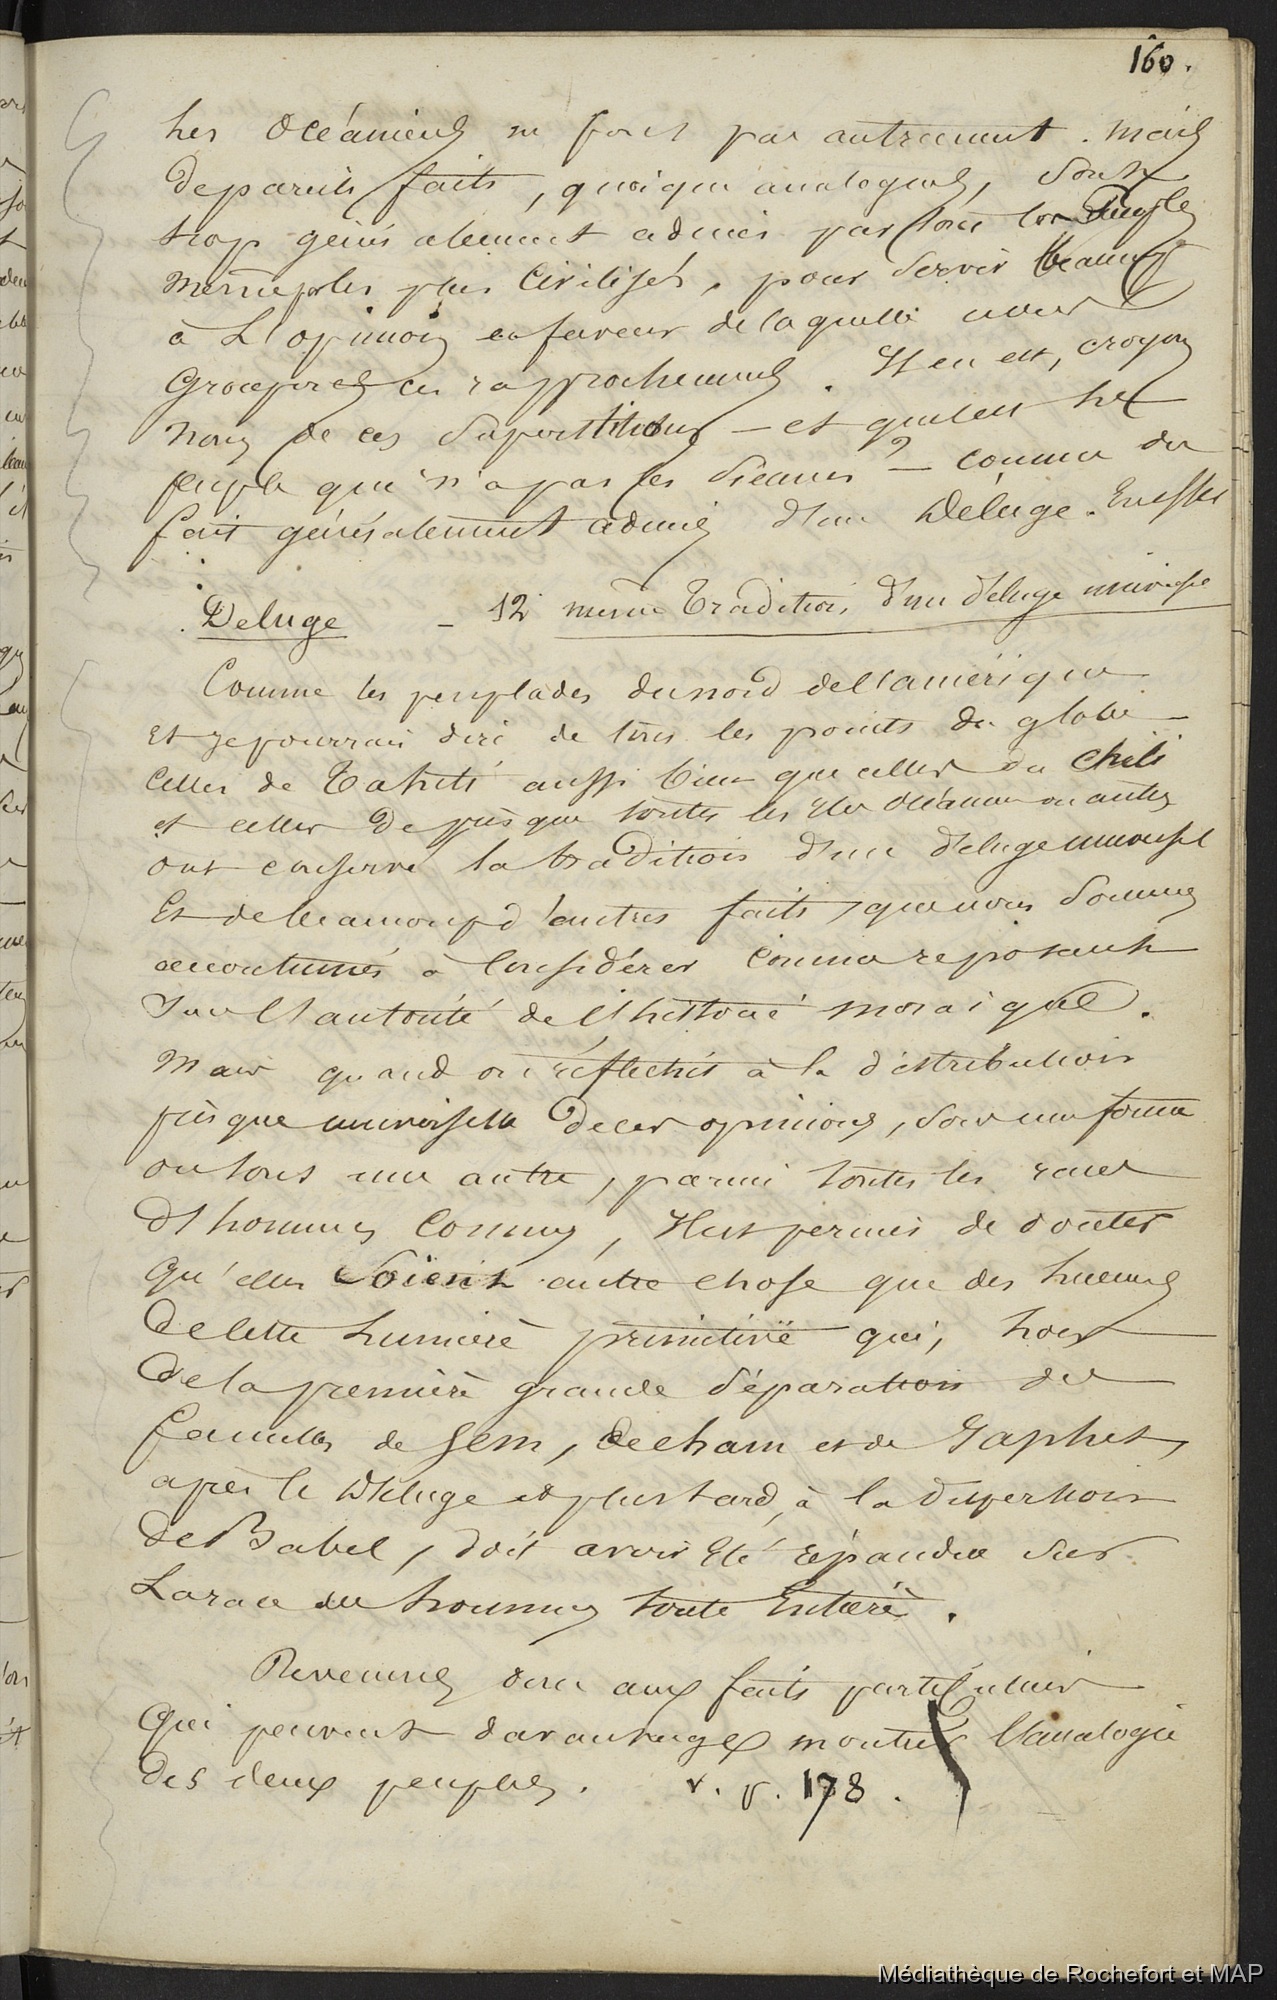 160.
Les Océaniens ne font pas autrement. mais
de pareils faits, quoique analogues, sont
trop généralement admis par tous les Peuples
même par les plus Civilisés, pour servir beaucoup
à L'opinion en faveur de laquelle nous
Groupons ces rapprochemens. Il en est, croyons
nous de ces superstitions – et quel est le
peuple qui n'a pas les siennes? – comme du
fait généralement admis d'un Déluge. En effet
:
Deluge – 12 même Tradition d'un déluge universel
Comme les peuplades du nord de l'amérique
et je pourrais dire de tous les points du globe –
Celles de Tahiti aussi bien que celles du Chili
et celles de presque toutes les Iles Océaniennes
ont conservé la tradition d'un déluge universel
Et de beaucoup d'autres faits, que nous sommes
accoutumés à Considérer comme reposant
sur l'autorité de l'histoire mosaique.
Mais quand on réfléchit à la distribution
presque universelle de ces opinions, sous une forme
ou sous une autre, parmi toutes les races
d'hommes Connus, Il est permis de douter
qu'elles soient autre chose que des lueurs
de cette lumière primitive qui, lors
de la première grande séparation des
familles de Sem, de cham et de Japhet,
après le Déluge et plus tard, à la dispersion
de Babel, doit avoir été répandue sur
La race des hommes toute Entière.
Revenons donc aux faits particuliers
Qui peuvent davantage montrer l'analogie
des deux peuples. v. p. 178.
Médiathèque de Rochefort et MAP